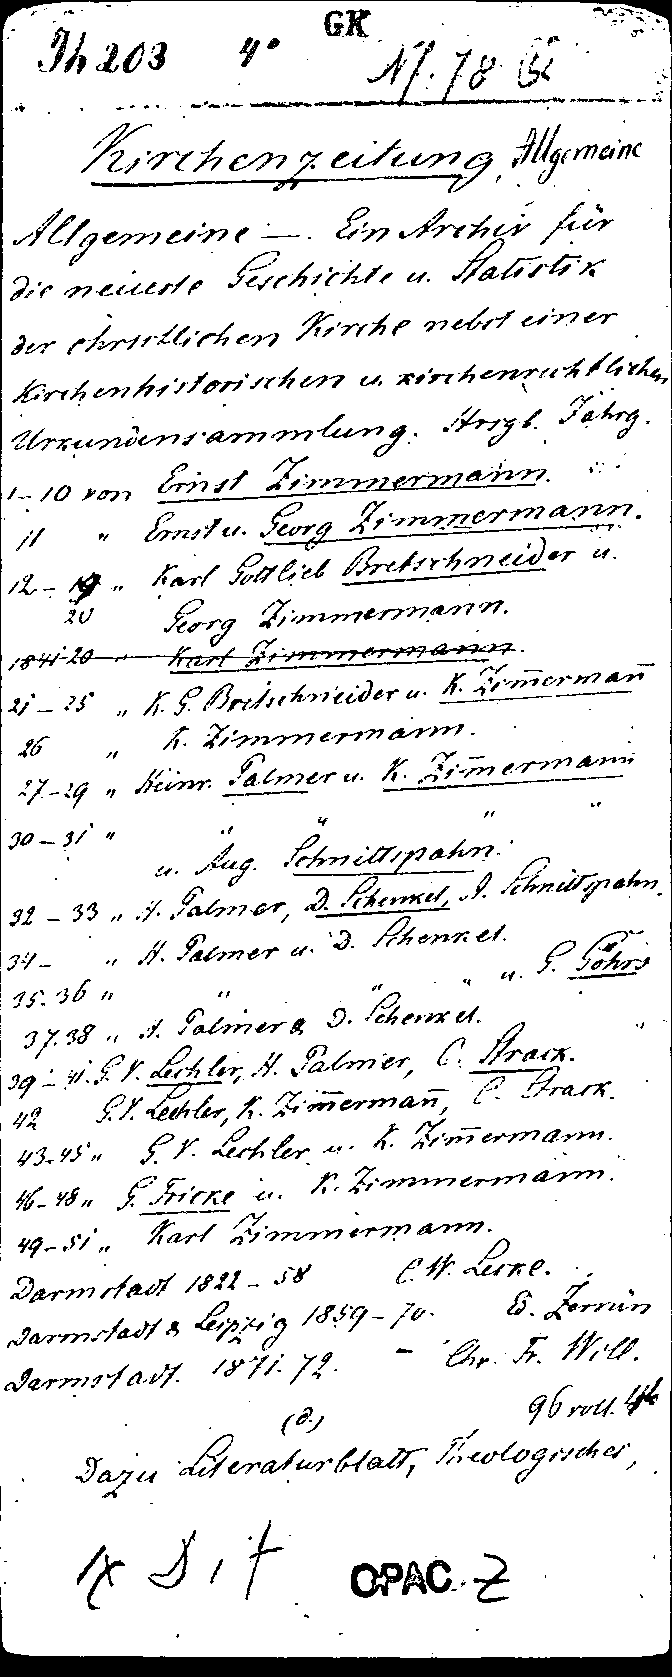 GK
Th 203 4° Nf. 78
Kirchenzeitung, Allgemeine
Allgemeine —. Ein Archiv für
die neueste Geschichte u. Statistik
der christlichen Kirche nebst einer
kirchenhistorischen u. kirchenrechtlichen
Urkundensammlung. Hrsgb. Jahrg.
1-10 von Ernst Zimmermann.
11 " Ernst u. Georg Zimmermann.
12-19 " Karl Gottlieb Bretschneider u.
20 Georg Zimmermann.
1841-20 " Karl Zimmermann.
21-25 " K. G. Bretschneider u. K. Zim̅erman̅
26 " K. Zimmermann.
27-29 " Heinr. Palmer u. K. Zim̅ermann
30-31 " " " " "
u. Aug. Schnittspahn.
32-33 " H. Palmer, D. Schenkel, A. Schnittspahn.
34- " H. Palmer u. D. Schenkel.
35.36 " " " " u. G. Göhrs
37.38 " H. Palmer & D. Schenkel.
39-41. G. V. Lechler, H. Palmer, C. Strack.
42 G. V. Lechler, K. Zim̅erman̅, C. Strack.
43-45 " G. V. Lechler u. K. Zim̅ermann.
46-48 " G. Fricke u. K. Zimmermann.
49-51 " Karl Zimmermann.
Darmstadt 1822-58 C. W. Leske.
Darmstadt & Leipzig 1859-70. Ed. Zernin
Darmstadt. 1871. 72. — Chr. Fr. Will.
(d.) 96 voll. 4°
Dazu Literaturblatt, Theologisches,
OPAC Z